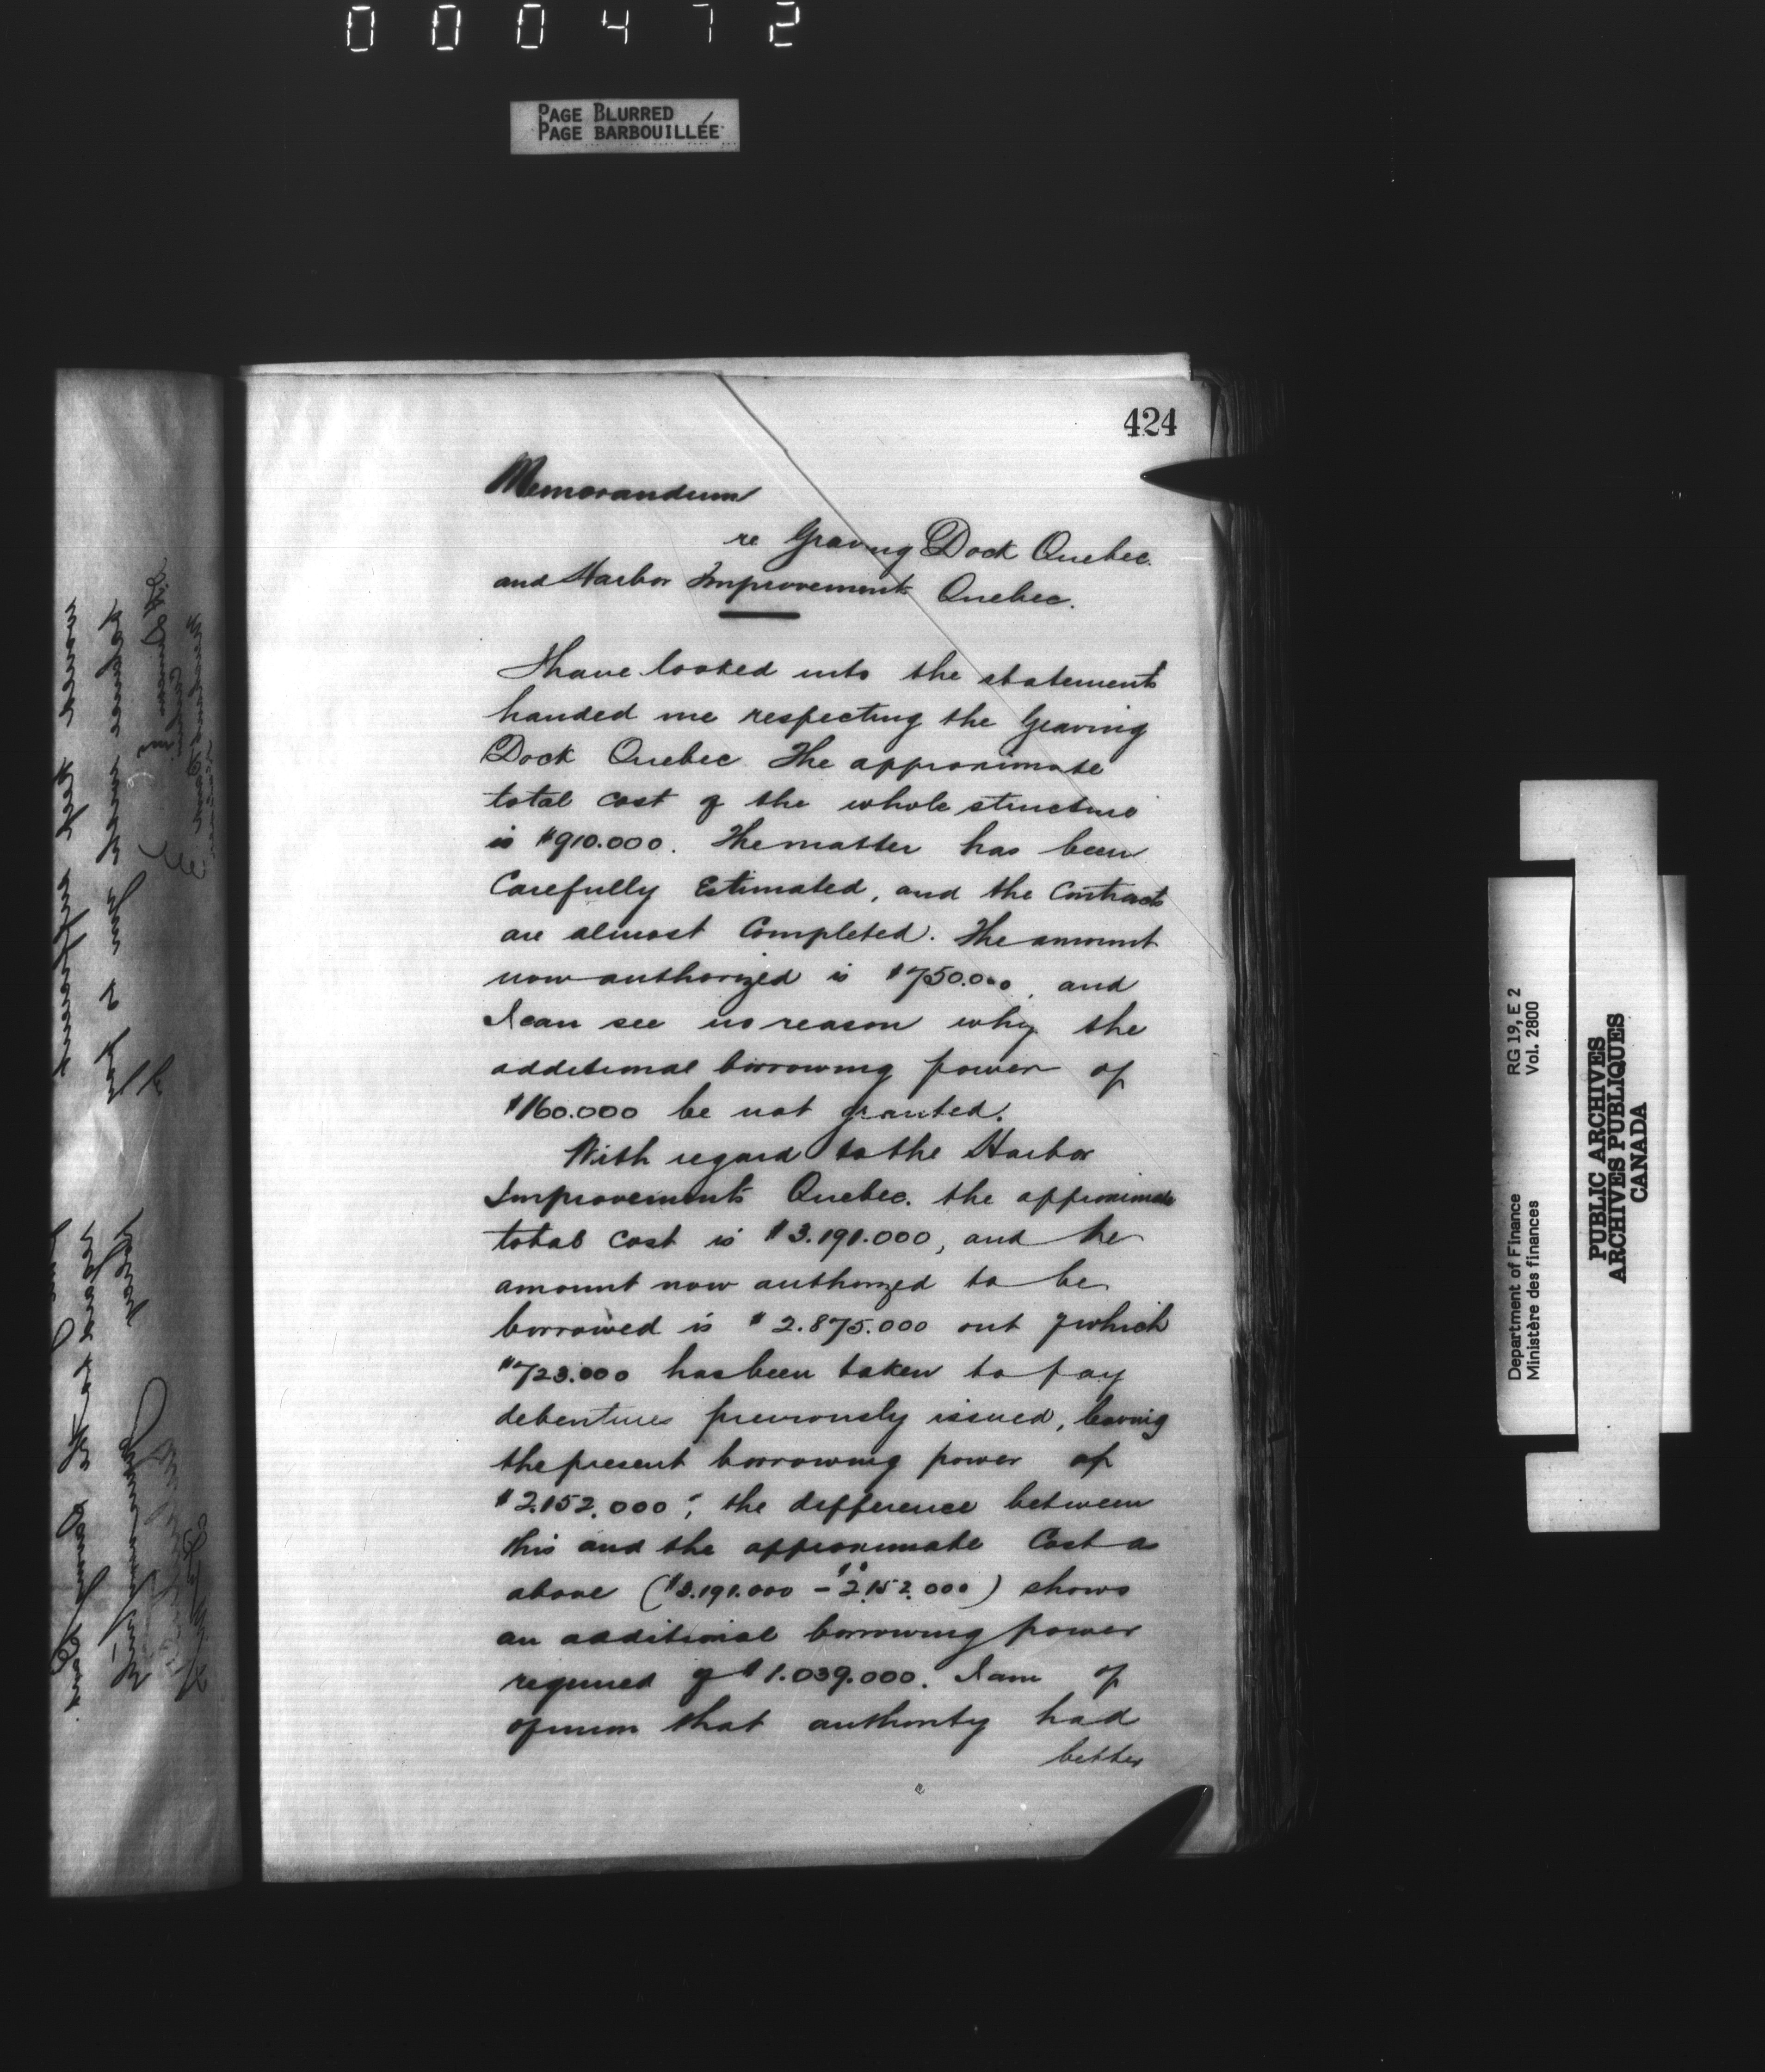 000472
PAGE BLURRED
PAGE BARBOUILLÉE
424
Memorandum
re Graving Dock Quebec.
and Harbor Improvements Quebec.
I have looked into the statements
handed me respecting the Graving
Dock Quebec. The approximate
total cost of the whole structure
is $910.000. The matter has been
Carefully Estimated, and the Contracts
are almost Completed. The amount
now authorized is $750.000, and
I can see no reason why the
additional borrowing power of
$160.000 be not granted.
With regard to the Harbor
Improvements Quebec. the approximate
total cost is $3.191.000, and the
amount now authorized to be
borrowed is $2.875.000 out of which
$723.000 has been taken to pay
debentures previously issued, leaving
the present borrowing power of
$2.152.000; the difference between
this and the approximate Cost as
above ($3.191.000 - $2.152.000) shows
an additional borrowing power
required of $1.039.000. I am of
opinion that authority had
better
Department of Finance
Ministère des finances
RG 19, E 2
Vol. 2800
PUBLIC ARCHIVES
ARCHIVES PUBLIQUES
CANADA